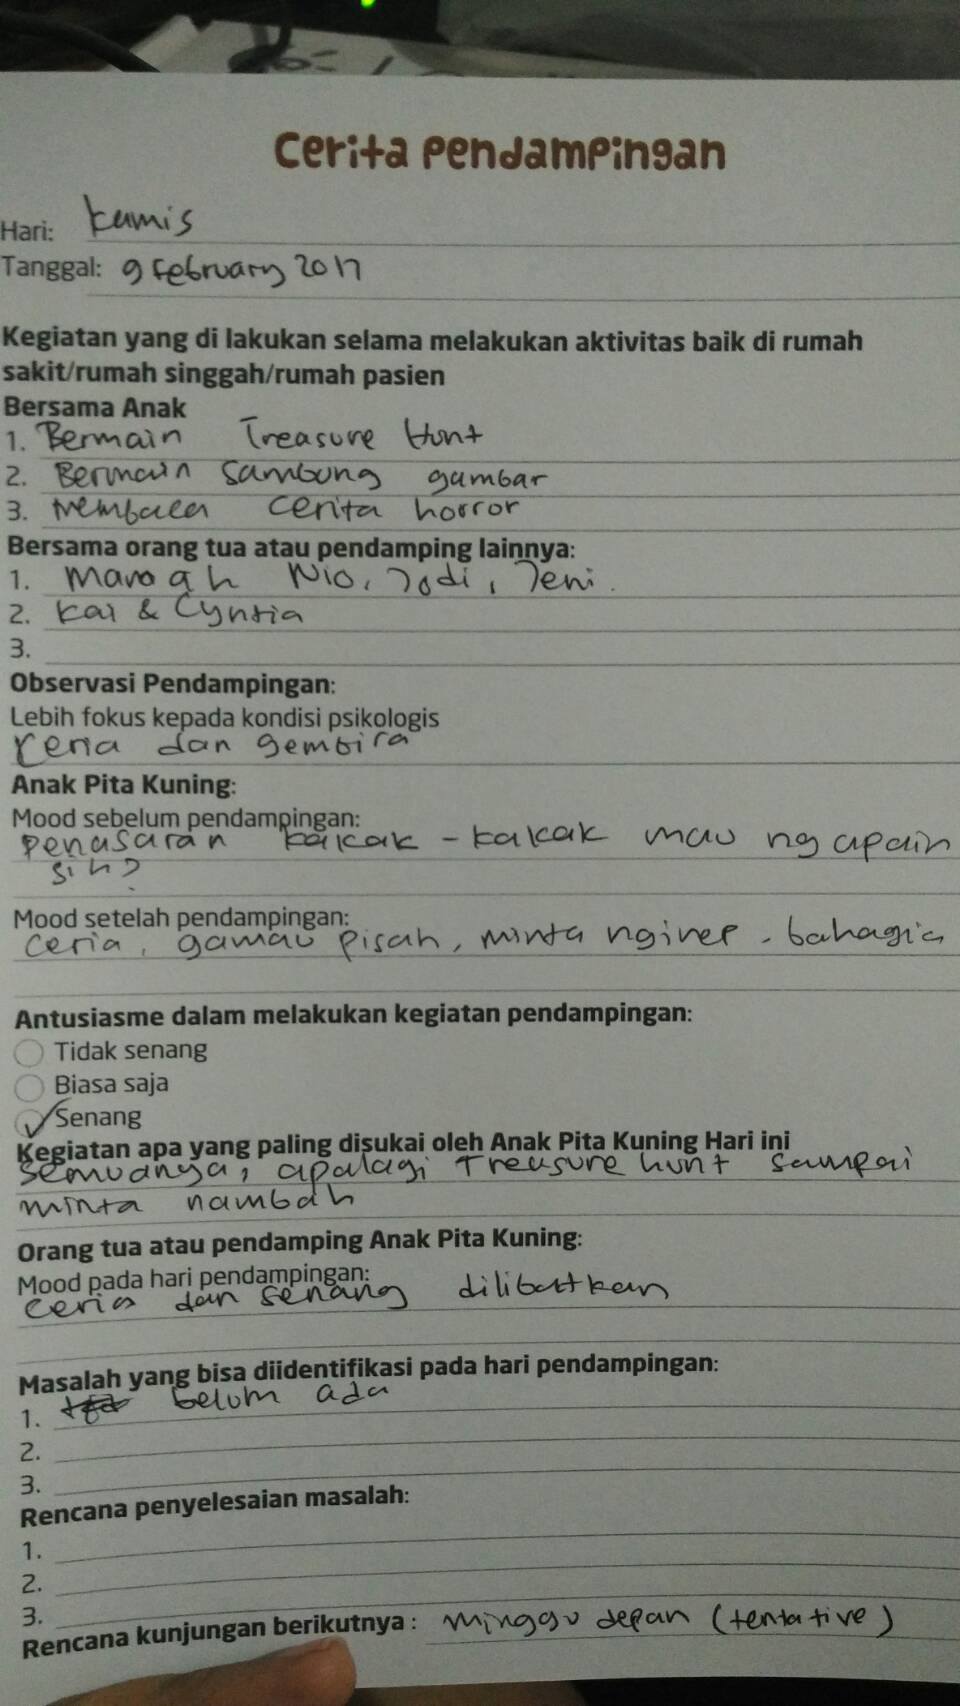 Cerita Pendampingan
Hari: Kamis
Tanggal: 9 February 2017
Kegiatan yang di lakukan selama melakukan aktivitas baik di rumah
sakit/rumah singgah/rumah pasien
Bersama Anak
1. Bermain Treasure Hunt
2. Bermain sambung gambar
3. Membaca cerita horror
Bersama orang tua atau pendamping lainnya:
1. Nio, Jodi, Jeni.
2. Kai & Cyntia
3.
Observasi Pendampingan:
Lebih fokus kepada kondisi psikologis
Ceria dan gembira
Anak Pita Kuning:
Mood sebelum pendampingan:
penasaran kakak-kakak mau ngapain
sih?
Mood setelah pendampingan:
ceria, gamau pisah, minta nginep, bahagia
Antusiasme dalam melakukan kegiatan pendampingan:
Tidak senang
Biasa saja
Senang
Kegiatan apa yang paling disukai oleh Anak Pita Kuning Hari ini
semuanya, apalagi Treasure hunt sampai
minta nambah
Orang tua atau pendamping Anak Pita Kuning:
Mood pada hari pendampingan:
ceria dan senang dilibatkan
Masalah yang bisa diidentifikasi pada hari pendampingan:
1. belum ada
2.
3.
Rencana penyelesaian masalah:
1.
2.
3.
Rencana kunjungan berikutnya : minggu depan (tentative)